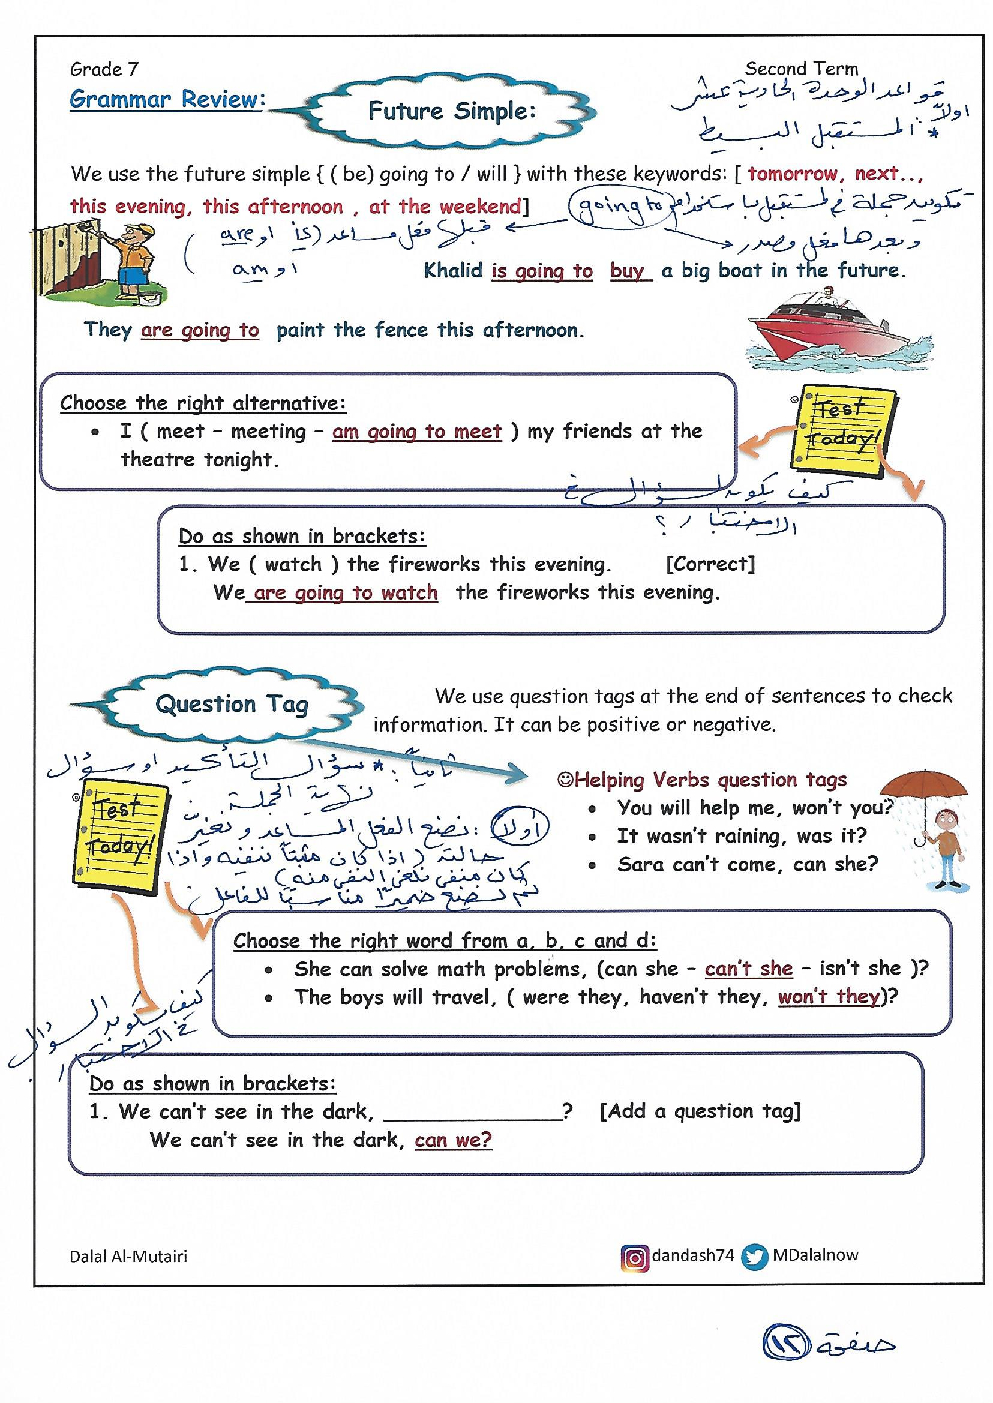 Grade 7
Second Term
Grammar Review:
Future Simple:
قواعد الوحدة الحادية عشر
أولاً
* المستقبل البسيط
We use the future simple { ( be) going to / will } with these keywords: [ tomorrow, next..,
this evening, this afternoon , at the weekend]
تكوين جملة في المستقبل باستخدام going to
قبلها فعل مساعد (is أو are
أو am)
وبعدها فعل مصدر
Khalid is going to buy a big boat in the future.
They are going to paint the fence this afternoon.
Choose the right alternative:
• I ( meet – meeting – am going to meet ) my friends at the
theatre tonight.
Test
Today!
كيف يكون السؤال في
الاختبار ؟
Do as shown in brackets:
1. We ( watch ) the fireworks this evening. [Correct]
We are going to watch the fireworks this evening.
Question Tag
We use question tags at the end of sentences to check
information. It can be positive or negative.
ثانياً : * سؤال التأكيد أو سؤال
نهاية الجملة
☺Helping Verbs question tags
• You will help me, won't you?
• It wasn't raining, was it?
• Sara can't come, can she?
Test
Today!
أولاً : نضع الفعل المساعد و نغير
حالته ( اذا كان مثبتاً ننفيه واذا
كان منفي نلغي النفي منه )
ثم نضع ضميراً مناسباً للفاعل
Choose the right word from a, b, c and d:
• She can solve math problems, (can she – can't she – isn't she )?
• The boys will travel, ( were they, haven't they, won't they)?
كيف يكون السؤال
في الاختبار
Do as shown in brackets:
1. We can't see in the dark, _______________? [Add a question tag]
We can't see in the dark, can we?
Dalal Al-Mutairi
dandash74
MDalalnow
صفحة ١٢